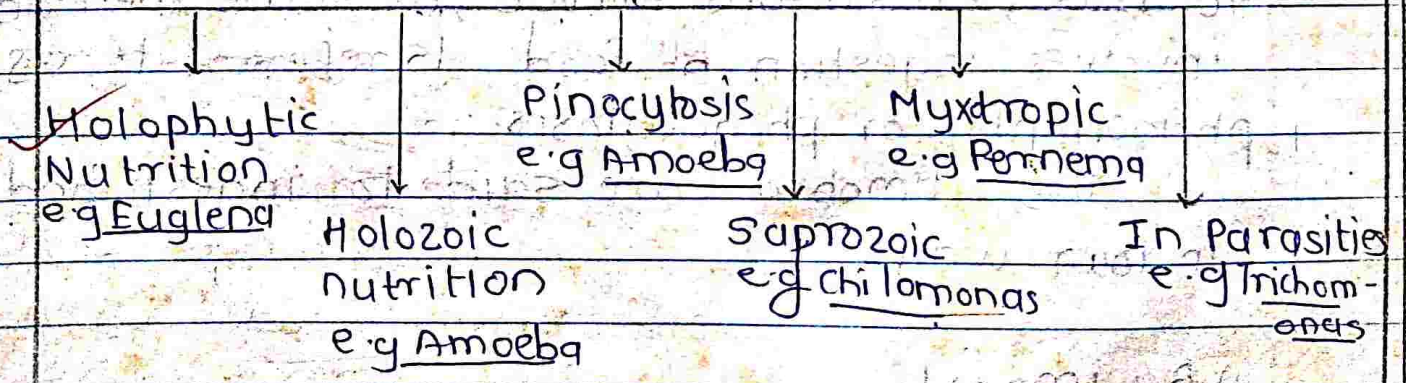 Holophytic
Nutrition
e.g Euglena
Holozoic
nutrition
e.g Amoeba
Pinocytosis
e.g Amoeba
Saprozoic
e.g Chilomonas
Myxotropic
e.g Pernema
In Parasities
e.g Trichom-
onas